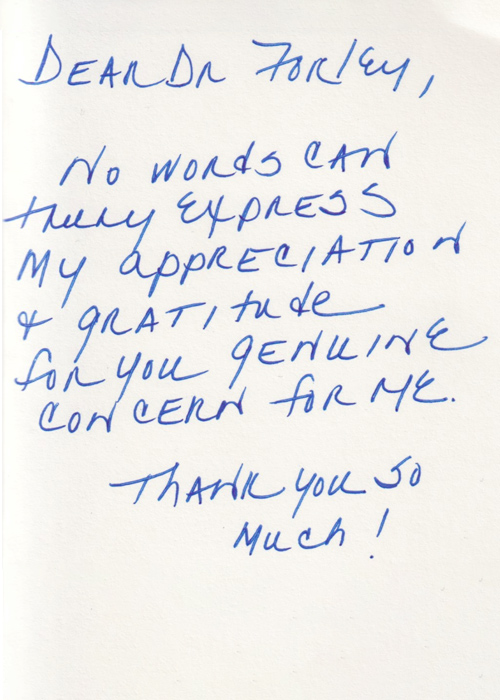 Dear Dr Forley,
No words can
truly express
my appreciation
& gratitude
for you genuine
concern for me.
Thank you so
much!